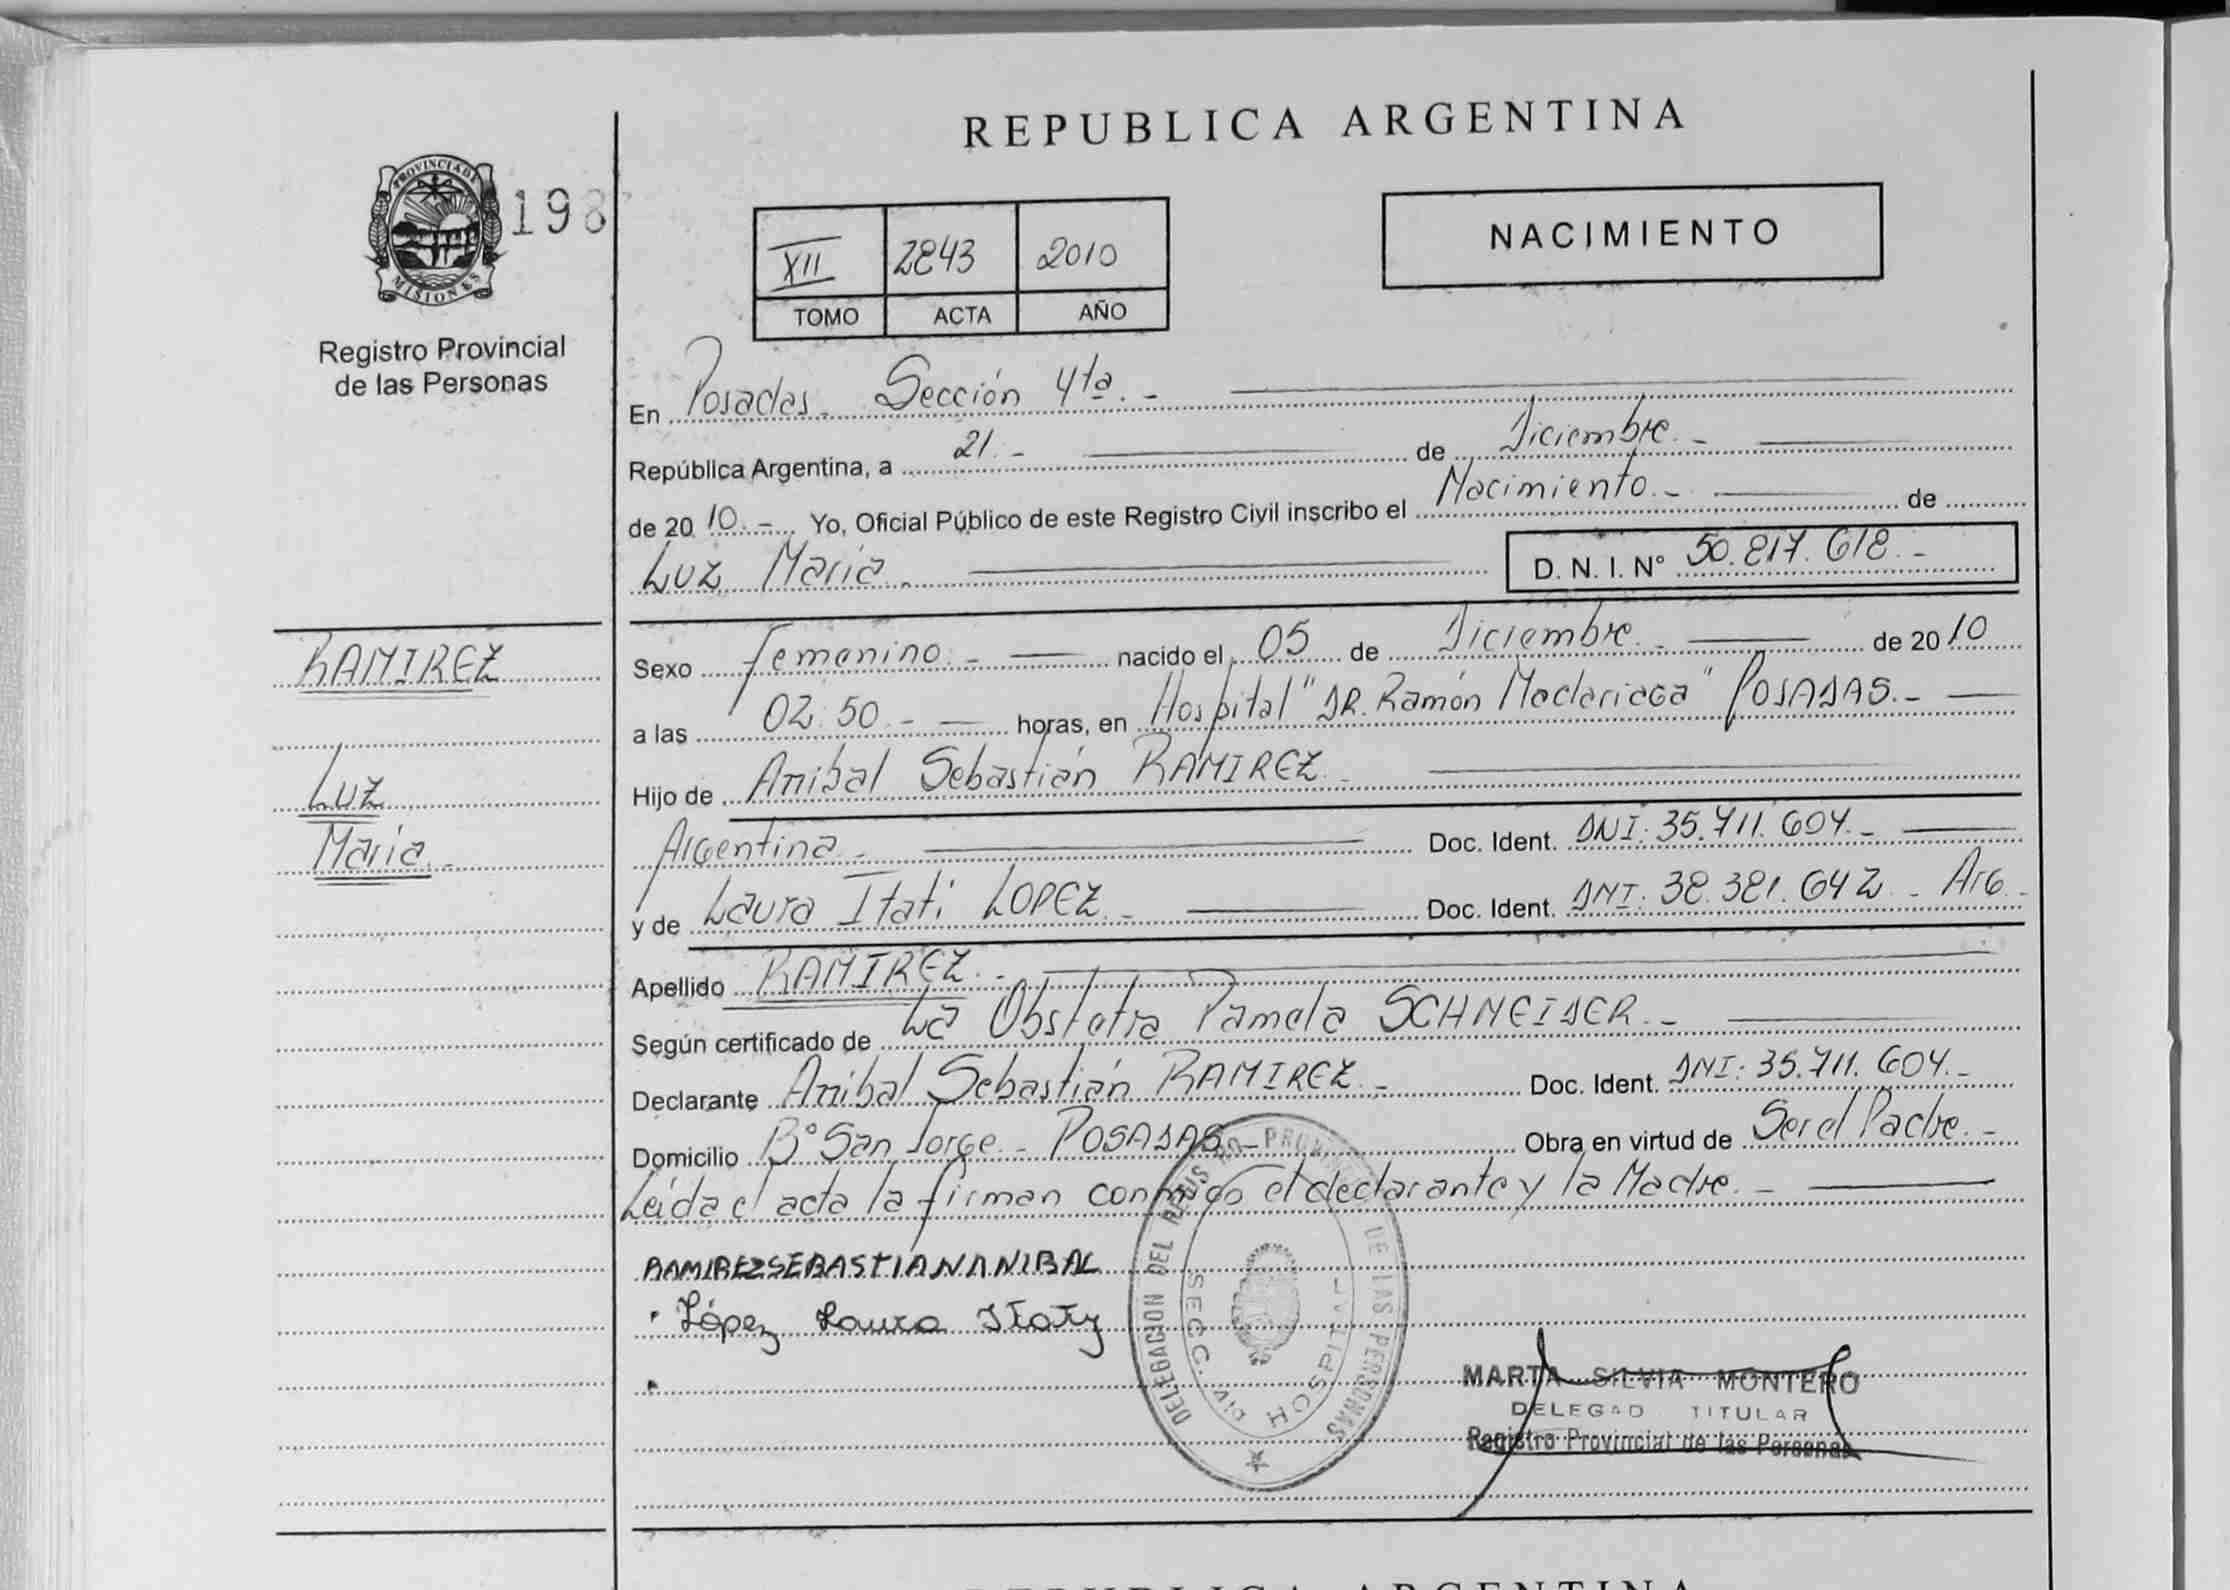 REPUBLICA ARGENTINA
PROVINCIA DE
MISIONES
198
Registro Provincial
de las Personas
XII 2843 2010
TOMO ACTA AÑO
NACIMIENTO
En Posadas. Sección 4ta. -
República Argentina, a 21. - de Diciembre. -
de 20 10. - Yo, Oficial Público de este Registro Civil inscribo el Nacimiento. - de
Luz María. D. N. I. Nº 50.817.618. -
RAMIREZ
Luz
María. -
Sexo femenino. - nacido el 05 de Diciembre. - de 20 10
a las 02:50. - horas, en Hospital "DR. Ramón Madariaga" POSADAS. -
Hijo de Anibal Sebastián RAMIREZ. -
Argentina. - Doc. Ident. DNI: 35.711.604. -
y de Laura Itati LOPEZ. - Doc. Ident. DNI: 38.381.642. - Arg. -
Apellido RAMIREZ. -
Según certificado de La Obstetra Pamela SCHNEIDER. -
Declarante Anibal Sebastián RAMIREZ. - Doc. Ident. DNI: 35.711.604. -
Domicilio Bº San Jorge. - POSADAS. - Obra en virtud de Ser el Padre. -
Leida el acta la firman conmigo el declarante y la Madre. -
RAMIREZ SEBASTIAN ANIBAL
López Laura Itaty
DELEGACION DEL REGISTRO PROVINCIAL DE LAS PERSONAS
SECC. 4ta HOSPITAL
MARTA SILVIA MONTERO
DELEGAD TITULAR
Registro Provincial de las Personas
REPUBLICA ARGENTINA